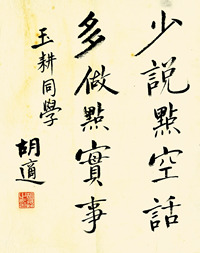 少說點空話
多做點實事
玉耕同學
胡適